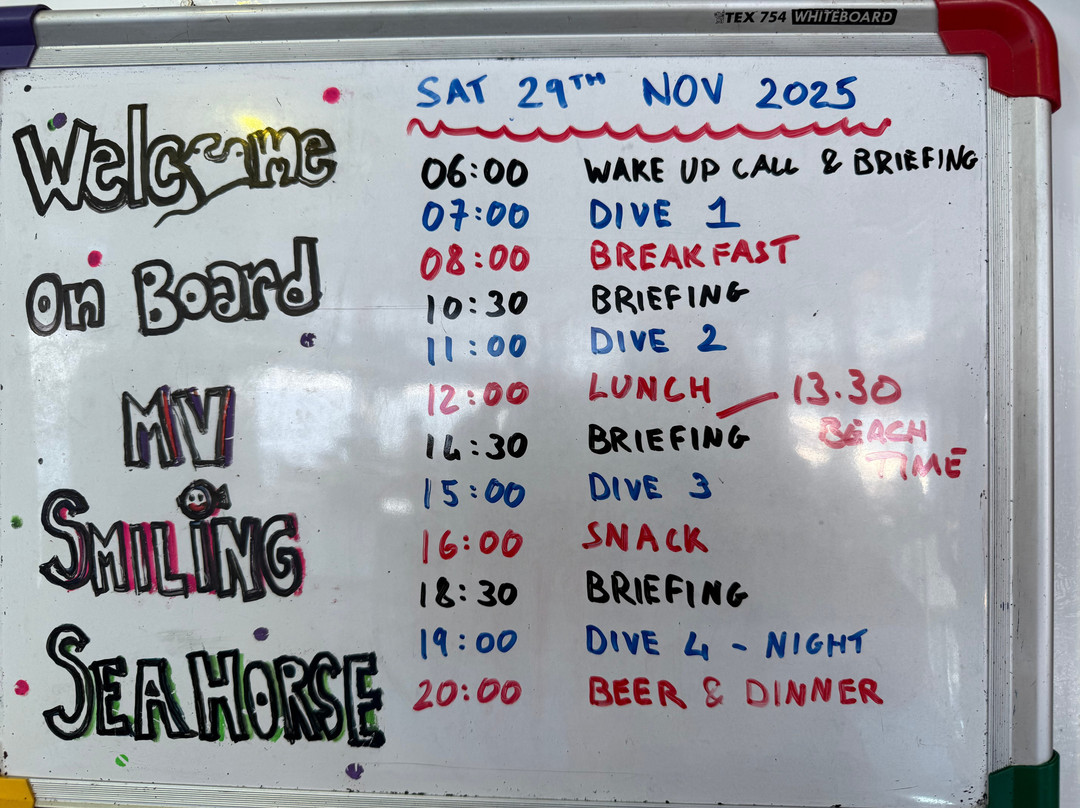 TEX 754 WHITEBOARD
Welcome
On Board
MV
SMILING
SEAHORSE
SAT 29TH NOV 2025
06:00 WAKE UP CALL & BRIEFING
07:00 DIVE 1
08:00 BREAKFAST
10:30 BRIEFING
11:00 DIVE 2
12:00 LUNCH — 13.30
BEACH
TIME
14:30 BRIEFING
15:00 DIVE 3
16:00 SNACK
18:30 BRIEFING
19:00 DIVE 4 - NIGHT
20:00 BEER & DINNER